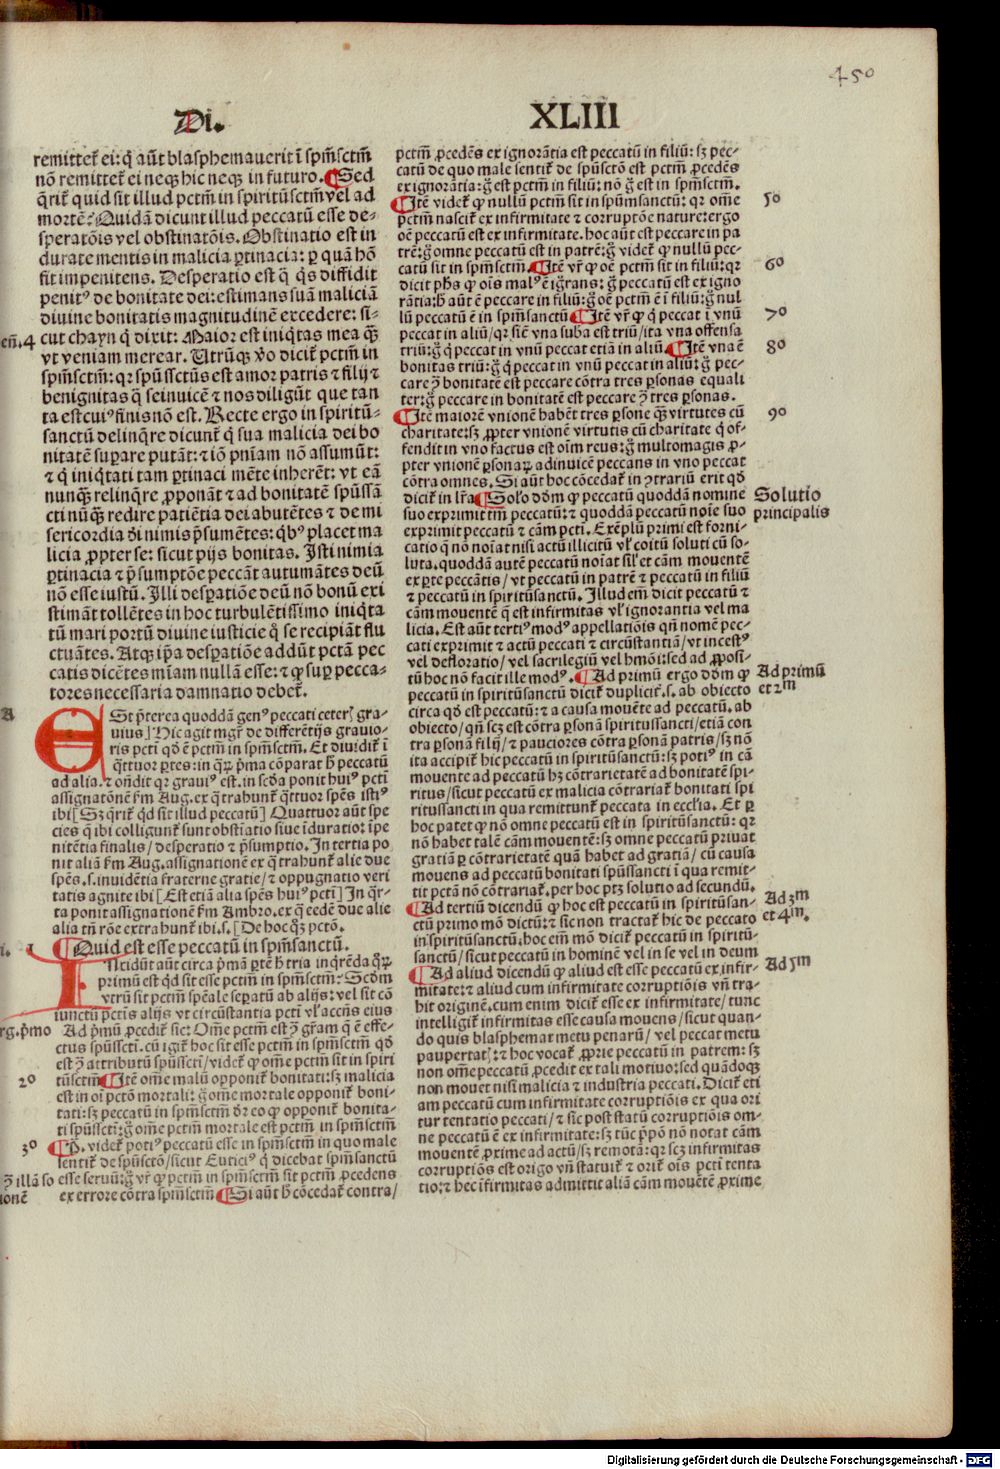 450
Di.
XLIII
remittet᷑ ei: q̇ aūt blasphemauerit ī spm̄sctm̄
nō remittet᷑ ei neqꝫ hic neqꝫ in futuro. ¶ Sed
q̄rit᷑ quid sit illud pctm̄ in spiritūsctm̄ vel ad
mortē? Quidā dicunt illud peccatū esse de-
speratōis vel obstinatōis. Obstinatio est in
durate mentis in malicia ꝑtinacia: ꝑ quā hō
fit impenitens. Desperatio est q̄ q̇s diffidit
penitꝰ de bonitate dei: estimans suā maliciā
diuine bonitatis magnitudinē excedere: si-
eñ. 4
cut chayn q̇ dixit: Maior est iniq̇tas mea q̄ꝫ
vt veniam merear. Utrūqꝫ v̊o dicit᷑ pctm̄ in
spm̄sctm̄: qꝛ spūssctūs est amor patris ⁊ filij ⁊
benignitas q̄ seinuicē ⁊ nos diligūt que tan
ta est cuiꝰ finis nō est. Recte ergo in spiritū-
sanctū delinq̄re dicunt᷑ q̇ sua malicia dei bo
nitatē suꝑare putāt: ⁊ iō pn̄iam nō assumūt:
⁊ q̇ iniq̇tati tam ꝑtinaci mēte inherēt: vt eā
nunq̄ꝫ relinq̄re ꝓponāt ⁊ ad bonitatē spūssā
cti nūq̄ꝫ redire patiētia dei abutētes ⁊ de mi
sericordia dī nimis p̄sumētes: q̇bꝰ placet ma
licia ꝓpter se: sicut pijs bonitas. Isti nimia
ꝑtinacia ⁊ p̄sumptōe peccāt autumātes deū
nō esse iustū. Illi desꝑatiōe deū nō bonū exi
stimāt tollētes in hoc turbulētissimo iniq̇ta
tū mari portū diuine iusticie q̊ se recipiāt flu
ctuātes. Atqꝫ ip̄a desꝑatiōe addūt pctā pec
catis dicētes miam̄ nullā esse: ⁊ ꝙ suꝑ pecca-
tores necessaria damnatio debet᷑.
A
ESt p̄terea quoddā genꝰ peccati ceterꝭ gra-
uius] Hic agit mgr̄ de differētijs grauio-
ris pcti qd̄ ē pctm̄ in spm̄sctm̄. Et diuidit᷑ ī
q̇ttuor ꝑtes: in q̄ꝝ p̄ma cōparat h̄ peccatū
ad alia. ⁊ on̄dit qꝛ grauiꝰ est. in scd̄a ponit huiꝰ pcti
assignatōnē ẜm Aug. ex q̄ trahunt᷑ q̇ttuor spēs istiꝰ
ibi [Sꝫ q̄rit᷑ q̇d sit illud peccatū] Quattuor aūt spe
cies q̄ ibi colligunt᷑ sunt obstīatio siue īduratio: īpe
nitētia finalis/ desperatio ⁊ p̄sumptio. In tertia po
nit aliā ẜm Aug. assignationē ex q̄ trahunt᷑ alie due
spēs. s. inuidētia fraterne gratie/ ⁊ oppugnatio veri
tatis agnite ibi [Est etiā alia spēs huiꝰ pcti] In q̇r-
ta ponit assignationē ẜm Ambro. ex q̄ eedē due alie
alia tn̄ rōe extrahunt᷑ ibi. s. [De hoc q̊ꝫ pctō.
i. 1 ¶ Quid est esse peccatū in spm̄sanctū.
INcidūt aūt circa p̄mā ꝑtē h̄ tria inq̇rēda q̄ꝝ
primū est q̇d sit esse pctm̄ in spm̄sctm̄? Scd̄m
vtrū sit pctm̄ spēale seꝑatū ab alijs: vel sit cō
iunctū pctis alijs vt circūstantia pcti vl̓ acc̄ns eius
rg. p̄mo
Ad p̄mū ꝓcedit᷑ sic: Om̄e pctm̄ est ↄ̄ gr̄am q̄ ē effe-
ctus spūsscti. cū igit᷑ hoc sit esse pctm̄ in spm̄sctm̄ qd̄
est ↄ̄ attributū spūsscti/ videt᷑ ꝙ om̄e pctm̄ sit in spiri
20
tūsctm̄ ¶ Itē om̄e malū opponit᷑ bonitati: sꝫ malicia
est in oī pctō mortali: ḡ om̄e mortale opponit᷑ boni-
tati: sꝫ peccatū in spm̄sctm̄ dr̄ eo ꝙ opponit᷑ bonita-
ti spūsscti: ḡ om̄e pctm̄ mortale est pctm̄ in spm̄sctm̄
30
¶ P̄. videt᷑ potiꝰ peccatū esse in spm̄sctm̄ in quo male
sentit᷑ de spūsctō/ sicut Euticiꝰ q̇ dicebat spm̄sanctū
ↄ̄ illā so
esse seruū: ḡ vr̄ ꝙ pctm̄ in spm̄sctm̄ sit pctm̄ ꝓcedens
ionē
ex errore cōtra spm̄sctm̄ ¶ Si aūt h̄ cōcedat᷑ contra/
pctm̄ ꝓcedēs ex ignorātia est peccatū in filiū: sꝫ pec-
catū de quo male sentit᷑ de spūsctō est pctm̄ ꝓcedēs
ex ignorātia: ḡ est pctm̄ in filiū: nō ḡ est in spm̄sctm̄.
50
¶ Itē videt᷑ ꝙ nullū pctm̄ sit in spūmsanctū: qꝛ om̄e
pctm̄ nascit᷑ ex infirmitate ⁊ corruptōe nature: ergo
oē peccatū est ex infirmitate. hoc aūt est peccare in pa
trē: ḡ om̄e peccatū est in patrē: ḡ videt᷑ ꝙ nullū pec-
60
catū sit in spm̄sctm̄. ¶ Itē vr̄ ꝙ oē pctm̄ sit in filiū: qꝛ
dicit ph̄s ꝙ oīs malꝰ ē igr̄ans: ḡ peccatū est ex igno
rātia: h̄ aūt ē peccare in filiū: ḡ oē pctm̄ ē ī filiū: ḡ nul
70
lū peccatū ē in spm̄sanctū ¶ Itē vr̄ ꝙ q̇ peccat ī vnū
peccat in aliū/ qꝛ sicut̄ vna suba est triū/ ita vna offensa
80
triū: ḡ q̇ peccat in vnū peccat etiā in aliū. ¶ Itē vna ē
bonitas triū: ḡ q̇ peccat in vnū peccat in aliū: ḡ pec-
care ↄ̄ bonitatē est peccare cōtra tres ꝑsonas equali
ter: ḡ peccare in bonitatē est peccare ↄ̄ tres ꝑsonas.
90
¶ Itē maiorē vnionē habēt tres ꝑsone q̄ꝫ virtutes cū
charitate: sꝫ ꝓpter vnionē virtutis cū charitate q̇ of-
fendit in vno factus est oīm reus: ḡ multomagis ꝓ-
pter vnionē ꝑsonaꝝ adinuicē peccans in vno peccat
cōtra omnes. Si aūt hoc cōcedat᷑ in ↄ̄trariū erit qd̄
Solutio
principalis
dicit᷑ in lr̄a ¶ Sol̓o dd̄m ꝙ peccatū quoddā nomine
suo exprimit tm̄ peccatū: ⁊ quoddā peccatū noīe suo
exprimit peccatū ⁊ cām pcti. Exēplū primi est forni-
catio q̄ nō noīat nisi actū illicitū vl̓ coitū soluti cū so-
luta. quoddā autē peccatū noīat sil̓ et cām mouentē
ex ꝑte peccātis/ vt peccatū in patrē ⁊ peccatū in filiū
⁊ peccatū in spiritūsanctū. Illud em̄ dicit peccatū ⁊
cām mouentē q̄ est infirmitas vl̓ ignorantia vel ma
licia. Est aūt tertiꝰ modꝰ appellatiōis qn̄ nomē pec-
cati exprimit ⁊ actū peccati ⁊ circūstantiā/ vt incestꝰ
vel defloratio/ vel sacrilegiū vel hm̄oi: sed ad ꝓposi-
Ad primū
et 2m̄
tū hoc nō facit ille modꝰ. ¶ Ad primū ergo dd̄m ꝙ
peccatū in spiritūsanctū dicit᷑ duplicit᷑. s. ab obiecto
circa qd̄ est peccatū: ⁊ a causa mouēte ad peccatū. ab
obiecto/ qn̄ scꝫ est cōtra ꝑsonā spiritussancti/ etiā con
tra ꝑsonā filij/ ⁊ pauciores cōtra ꝑsonā patris/ sꝫ nō
ita accipit᷑ hic peccatū in spiritūsanctū: sꝫ potiꝰ in cā
mouente ad peccatū hꝫ cōtrarietatē ad bonitatē spi-
ritus/ sicut peccatū ex malicia cōtrariat᷑ bonitati spi
ritussancti in qua remittunt᷑ peccata in eccl̓ia. Et ꝑ
hoc patet ꝙ nō omne peccatū est in spiritūsanctū: qꝛ
nō habet talē cām mouentē: sꝫ omne peccatū priuat
gratiā ꝑ cōtrarietatē quā habet ad gratiā/ cū causa
mouens ad peccatū bonitati spūssancti ī qua remit-
tit pctā nō cōtrariat᷑. per hoc ptꝫ solutio ad secundū.
Ad 3m
et 4m̄.
¶ Ad tertiū dicendū ꝙ hoc est peccatū in spiritūsan-
ctū primo mō dictū: ⁊ sic non tractat᷑ hic de peccato
in spiritūsanctū. hoc em̄ mō dicit᷑ peccatū in spiritū-
sanctū/ sicut peccatū in hominē vel in se vel in deum
Ad 5m
¶ Ad aliud dicendū ꝙ aliud est esse peccatū ex infir-
mitate: ⁊ aliud cum infirmitate corruptiōis vn̄ tra-
hit originē. cum enim dicit᷑ esse ex infirmitate/ tunc
intelligit᷑ infirmitas esse causa mouens/ sicut quan-
do quis blasphemat metu penarū/ vel peccat metu
paupertatꝭ: ⁊ hoc vocat᷑ ꝓprie peccatū in patrem: sꝫ
non om̄e peccatū ꝓcedit ex tali motiuo: sed quādoqꝫ
non mouet nisi malicia ⁊ industria peccati. Dicit᷑ eti
am peccatū cum infirmitate corruptiōis ex qua ori
tur tentatio peccati/ ⁊ sic post statū corruptiōis om-
ne peccatū ē ex infirmitate: sꝫ tūc p̄pō nō notat cām
mouentē ꝓxime ad actū/ sꝫ remotā: qꝛ scꝫ infirmitas
corruptiōis est origo vn̄ statuit᷑ ⁊ orit᷑ oīs pcti tenta
tio: ⁊ hec īfirmitas admittit aliā cām mouētē ꝓxime
Digitalisierung gefördert durch die Deutsche Forschungsgemeinschaft - DFG